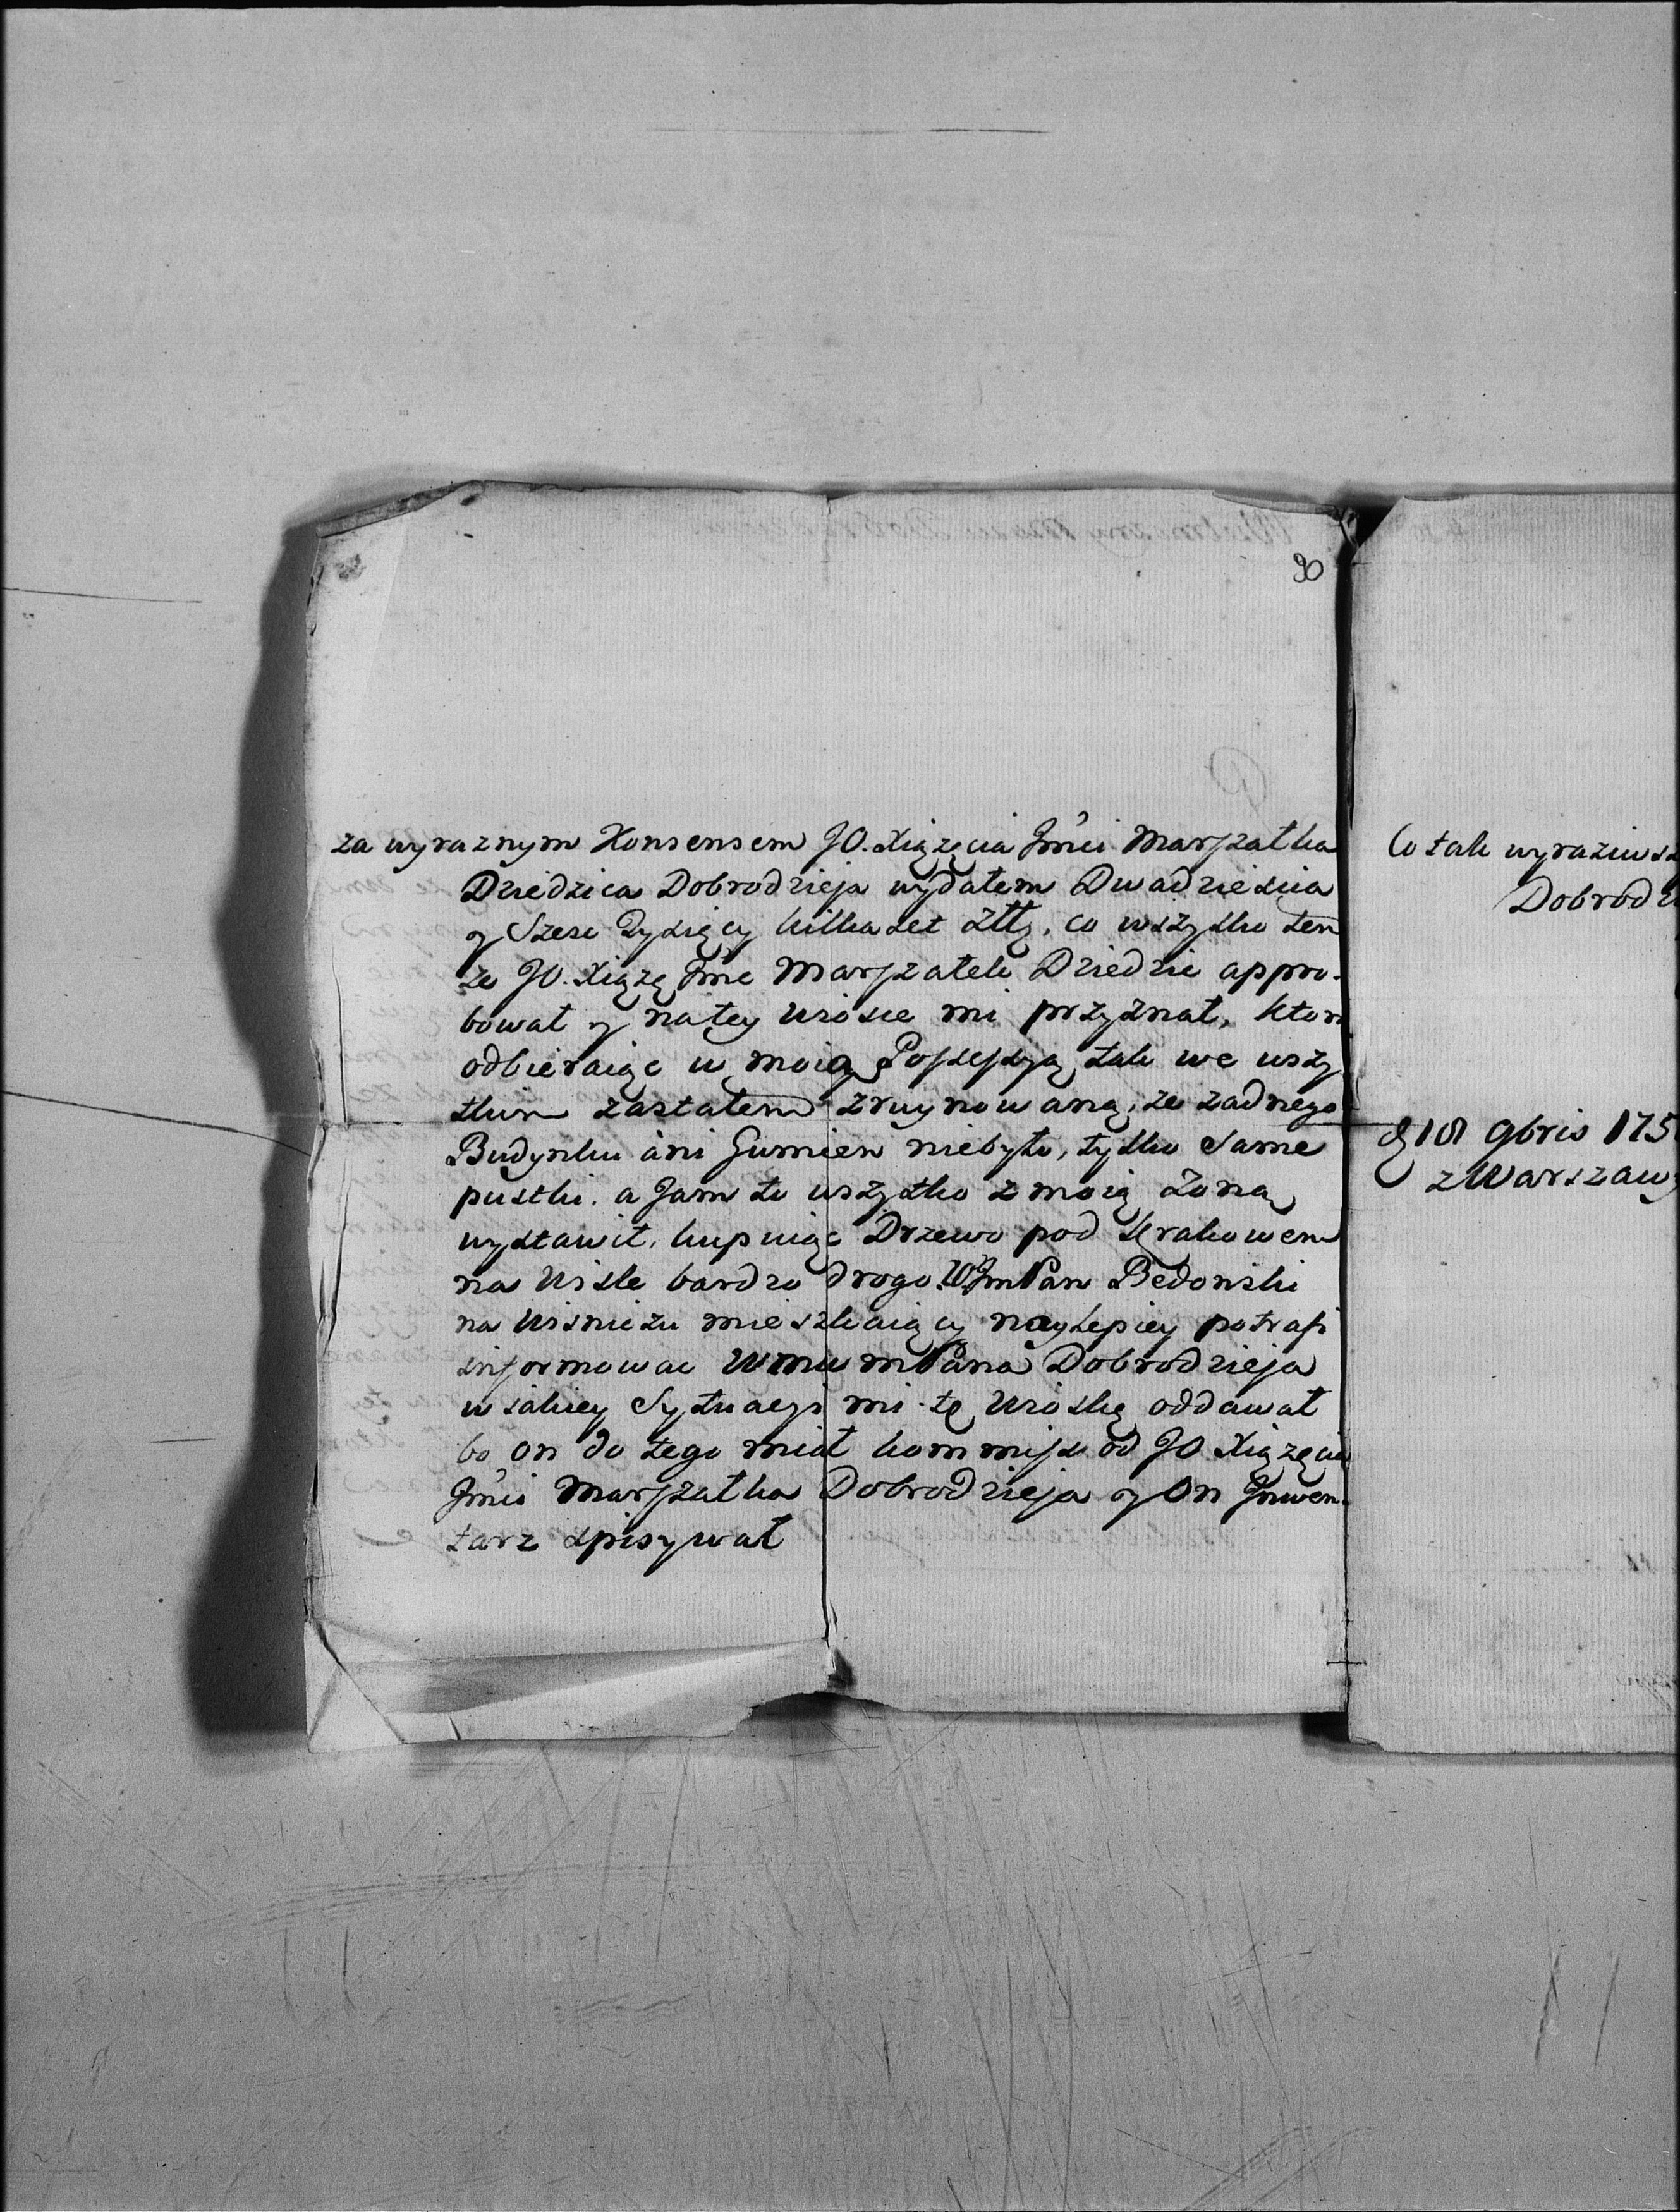 90
za wyraznym Konsensem JO. Xiążęcia Jmci Marszałka
Dziedzica Dobrodzieja wydałem Dwadziescia
y Szesc Tysięcy kilkaset Złł, co wszystko ten
ze JO. Xiążę Jmc Marszałek Dziedzic appro-
bował y na tey Wiosce mi przyznał, ktorą
odbieraiąc w moię Possessyą tak we wszy
tkim zastałem zruynowaną, ze zadnego
Budynku ani Gumien niebyło, tylko same
pustki. a Jam to wszytko z moią Zoną
wystawił, kupuiąc Drzewo pod Krakowem
na Wisle bardzo drogo. WJmPan Bedonski
na Wisniczu mieszkaiący naylepiey potrafi
informowac WmumPana Dobrodzieja
w iakiey Sytuacyi mi tę Wioskę oddawał
bo on do tego miał kommiss od JO Xiążęcia
Jmci Marszałka Dobrodzieja y On Jnwen-
tarz spisywał
Co tak wyraziwsz
Dobrodzi
9bris 175
z Warszawy